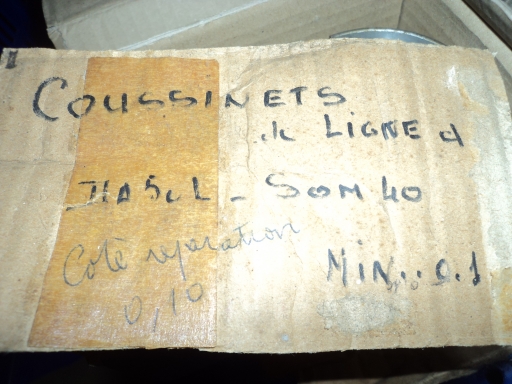 COUSSINETS
de LIGNE d
SOM 40
Cote reparation
0,10
MIN..0.1